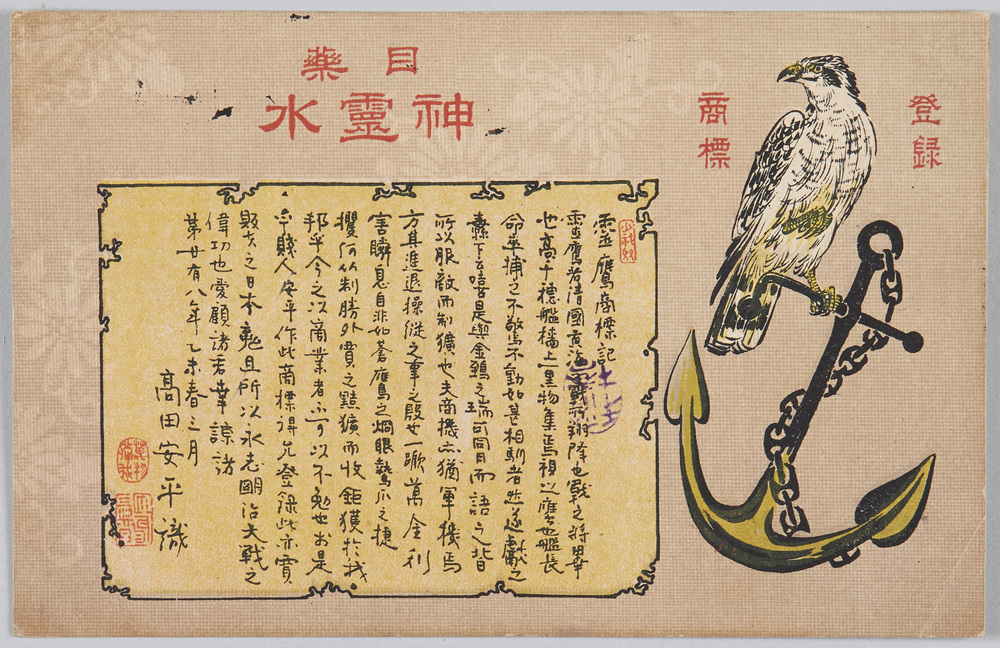 目藥
神靈水
登錄
商標
靈鷹商標記
靈鷹者清國黃海之戰所翔降也戰之將畢
也高千穗艦檣上黑物集焉視以鷹也艦長
命卒捕之不驚不動如甚相馴者然遂獻之
橐下云嘻是與金鵄之瑞可同日而語之皆
所以服敵而制獷也夫商機亦猶軍機焉
方其進退操縱之事之殷也一蹶萬金利
害瞬息自非如蒼鷹之烱眼鷙爪之捷
攫何以制勝外賈之黠獷而收鉅獲於我
邦乎今之以商業者不可以不勉也於是
乎賤人安平作此商標得允登錄此亦賣
眼藥之日本魂且所以永志明治大戰之
偉功也愛顧諸君幸諒諸
第廿有八年乙未春三月
高田安平識